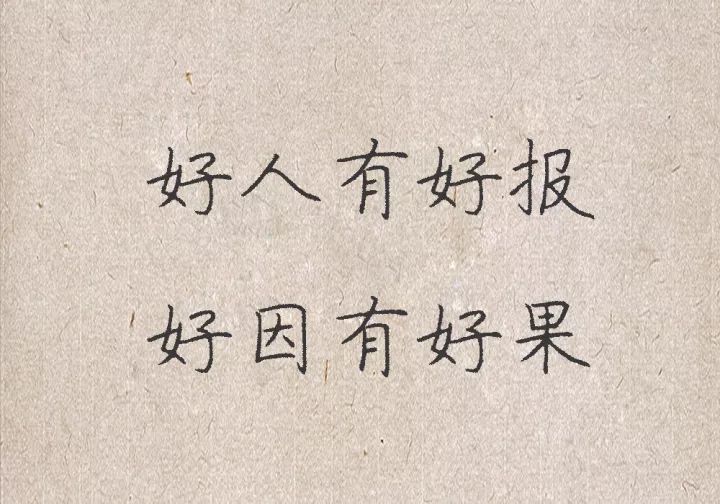 好人有好报
好因有好果